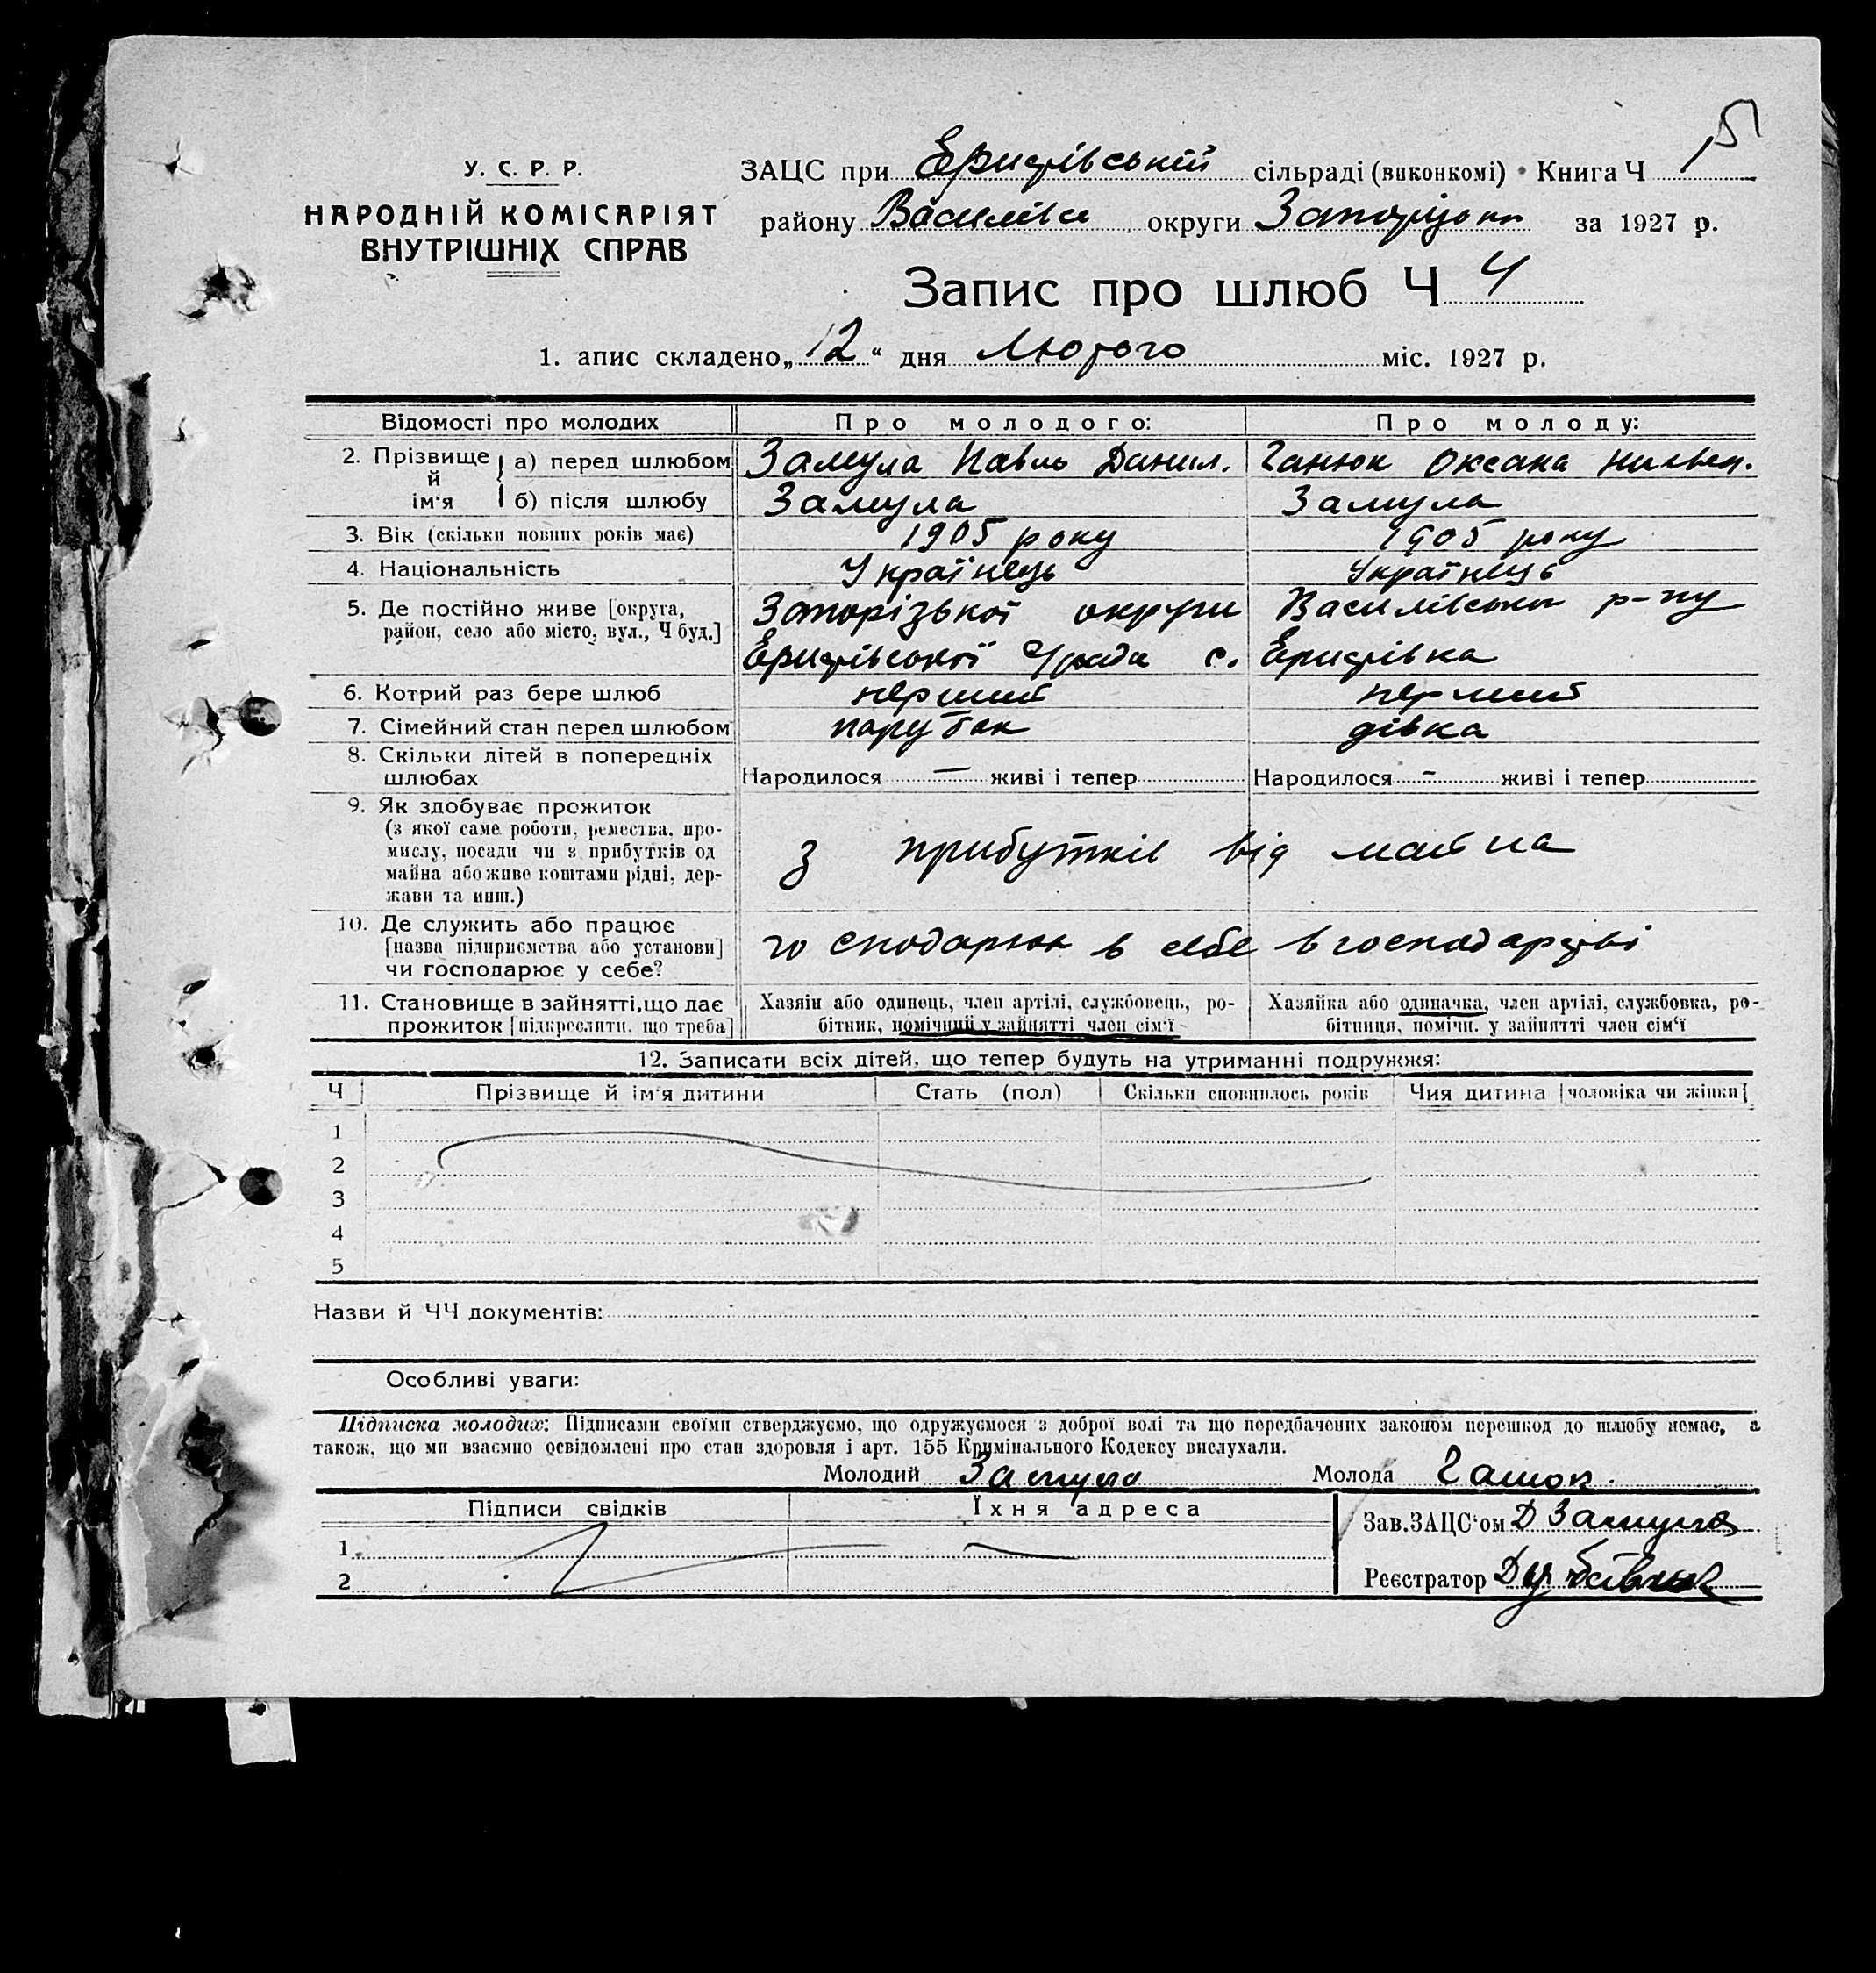 5
У. С. Р. Р.
НАРОДНІЙ КОМІСАРІЯТ
ВНУТРІШНІХ СПРАВ
ЗАЦС при Єристівській сільраді (виконкомі) • Книга Ч 1
району Василівсь округи Запоріжжя за 1927 р.
Запис про шлюб Ч 4
1. апис складено „12“ дня Лютого міс. 1927 р.
Відомості про молодих Про молодого: Про молоду:
2. Прізвище й ім'я а) перед шлюбом Замула Павло Данил. Ганюк Оксана
б) після шлюбу Замула Замула
3. Вік (скільки повних років має) 1905 року 1905 року
4. Національність Українець Українець
5. Де постійно живе [округа, Запорізької округи Василівського р-ну
район, село або місто, вул., Ч буд.] Єристівської с. Єристівка
6. Котрий раз бере шлюб перший перший
7. Сімейний стан перед шлюбом парубок дівка
8. Скільки дітей в попередніх
шлюбах Народилося — живі і тепер Народилося - живі і тепер
9. Як здобуває прожиток
(з якої саме роботи, ремества, про-
мислу, посади чи з прибутків од
майна або живе коштами рідні, дер-
жави та инш.)
з прибутків від майна
10. Де служить або працює
[назва підприємства або установи]
чи господарює у себе?
го сподарюю в себе в господарстві
11. Становище в зайнятті, що дає Хазяін або одинець, член артілі, службовець, ро- Хазяйка або одиначка, член артілі, службовка, ро-
прожиток [підкреслити, що треба] бітник, помічний у зайнятті член сім'ї бітниця, помічн. у зайнятті член сім'ї
12. Записати всіх дітей, що тепер будуть на утриманні подружжя:
Ч Прізвище й ім'я дитини Стать (пол) Скільки сповнилось років Чия дитина [чоловіка чи жінки]
1
2
3
4
5
Назви й ЧЧ документів:
Особливі уваги:
Підписка молодих: Підписами своїми стверджуємо, що одружуємося з доброї волі та що передбачених законом перешкод до шлюбу немає, а
також, що ми взаємно освідомлені про стан здоровля і арт. 155 Кримінального Кодексу вислухали.
Молодий Замула Молода Ганюк.
Підписи свідків Їхня адреса
Зав.ЗАЦС'ом Д Замула
1
2
Реєстратор